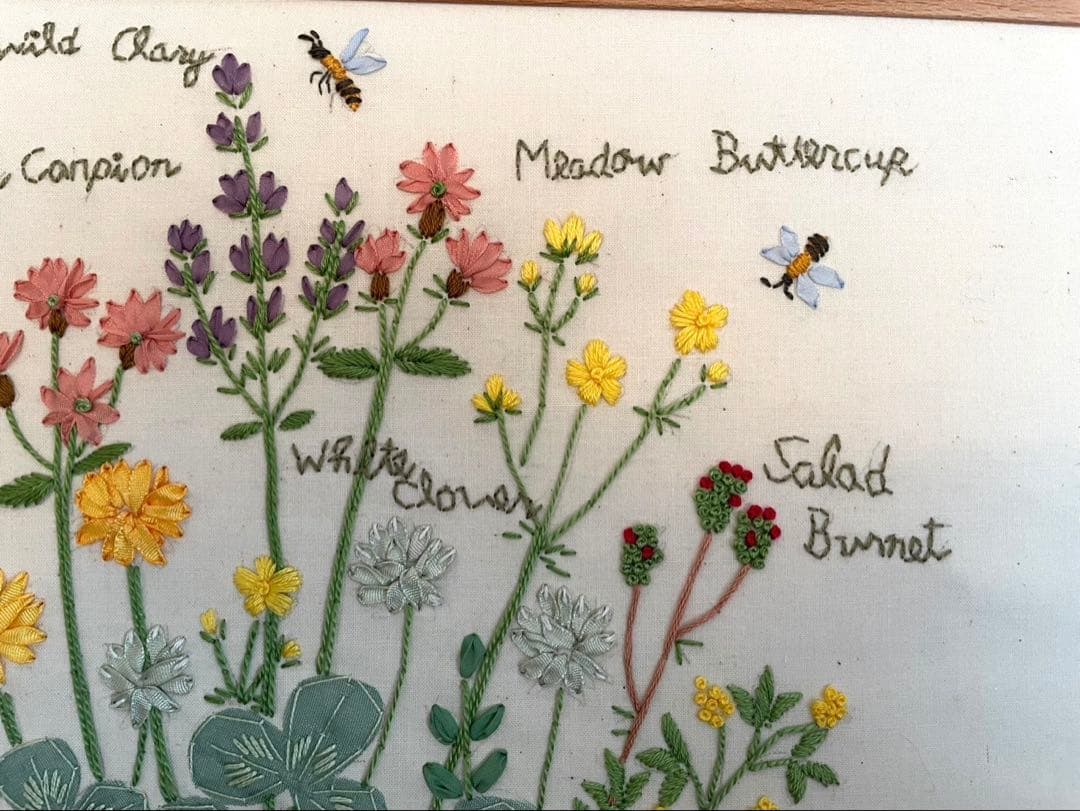 wild Clary
Canpion
Meadow Buttercup
White
Clover
Salad
Burnet